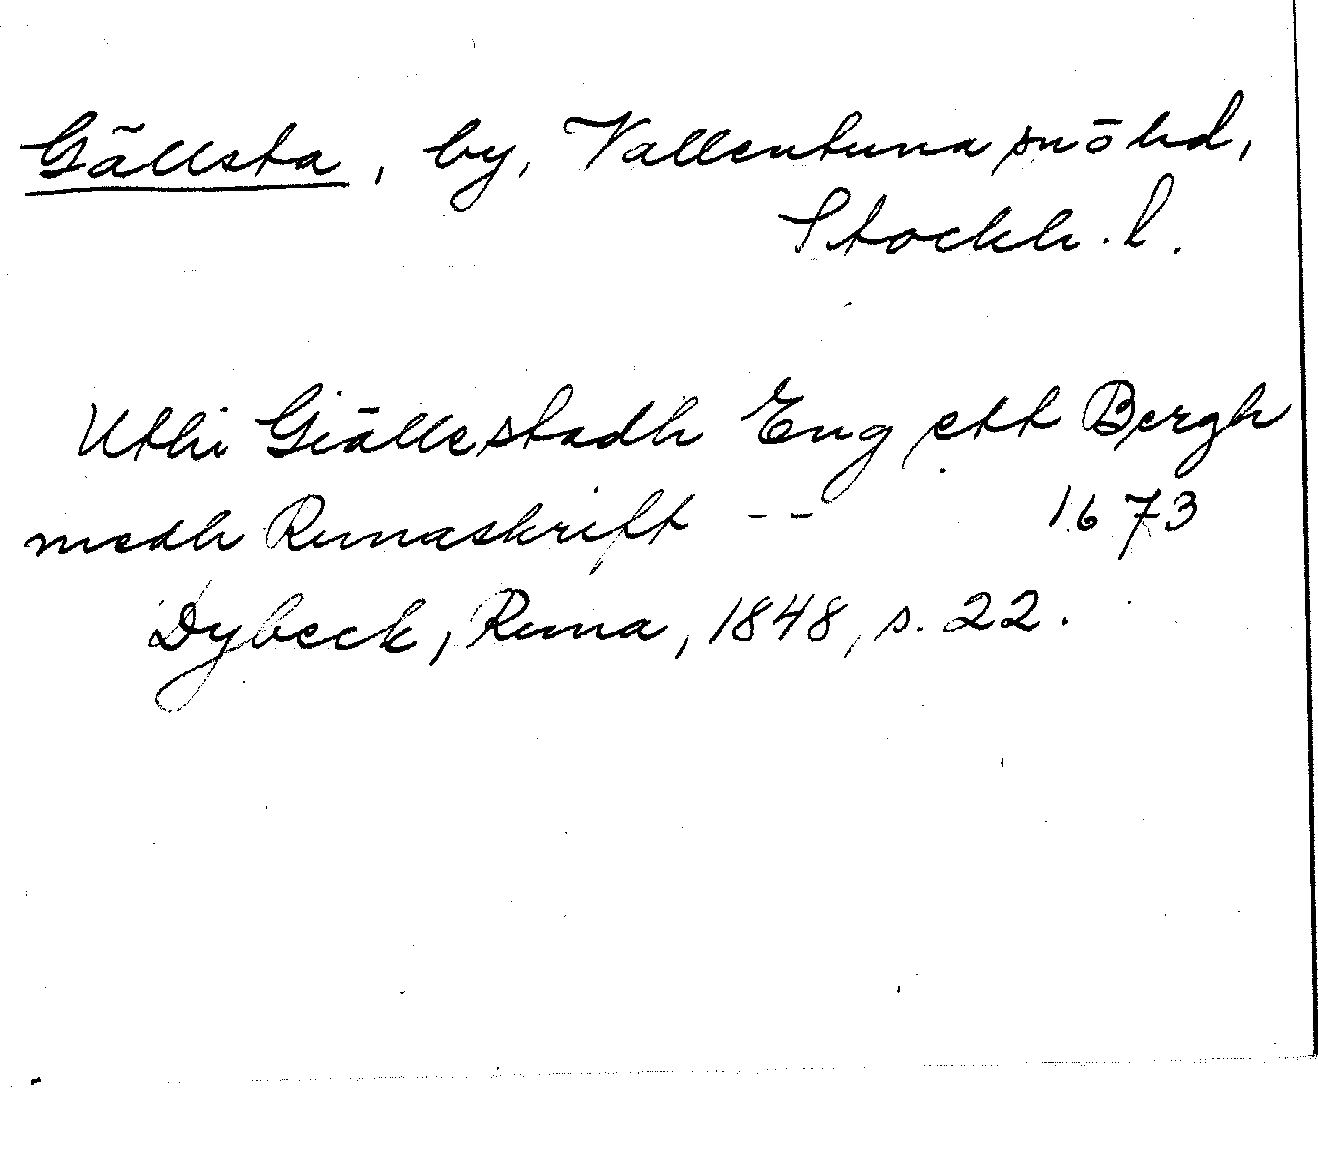 Gällsta, by, Vallentuna sn ō hd,
Stockh. l.
Uthi Giällestadh Eng ett Bergh
medh Runaskrift -- 1673
Dybeck, Runa, 1848, s. 22.